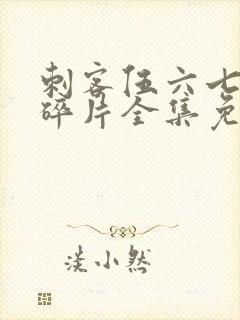 刺客伍六七
碎片全集免
淡小然